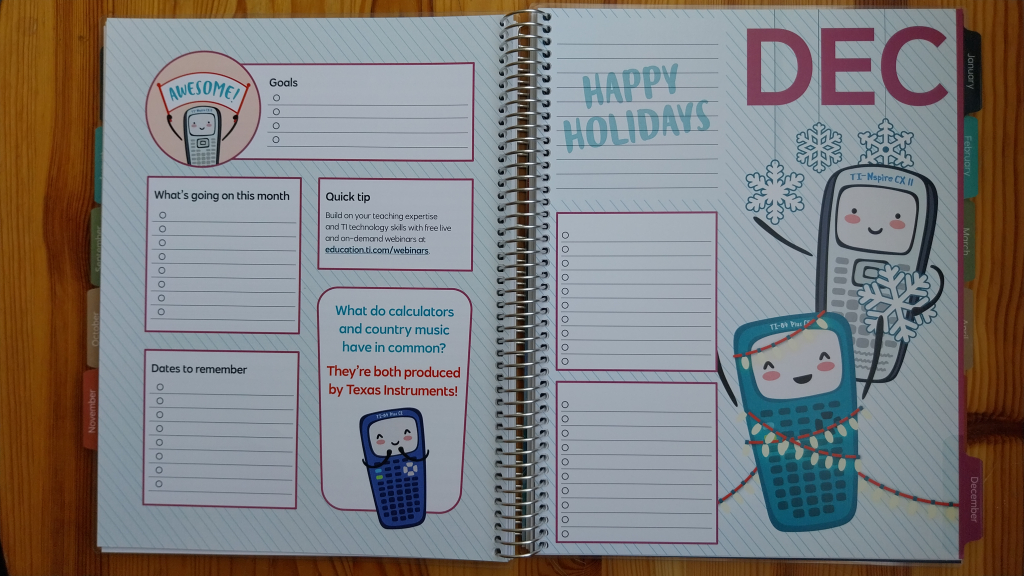 AWESOME!
Goals
What's going on this month
Quick tip
Build on your teaching expertise
and TI technology skills with free live
and on-demand webinars at
education.ti.com/webinars.
What do calculators
and country music
have in common?
They're both produced
by Texas Instruments!
TI-84 Plus CE
Dates to remember
October
November
HAPPY
HOLIDAYS
DEC
TI-Nspire CX II
TI-84 Plus CE
January
February
March
April
December